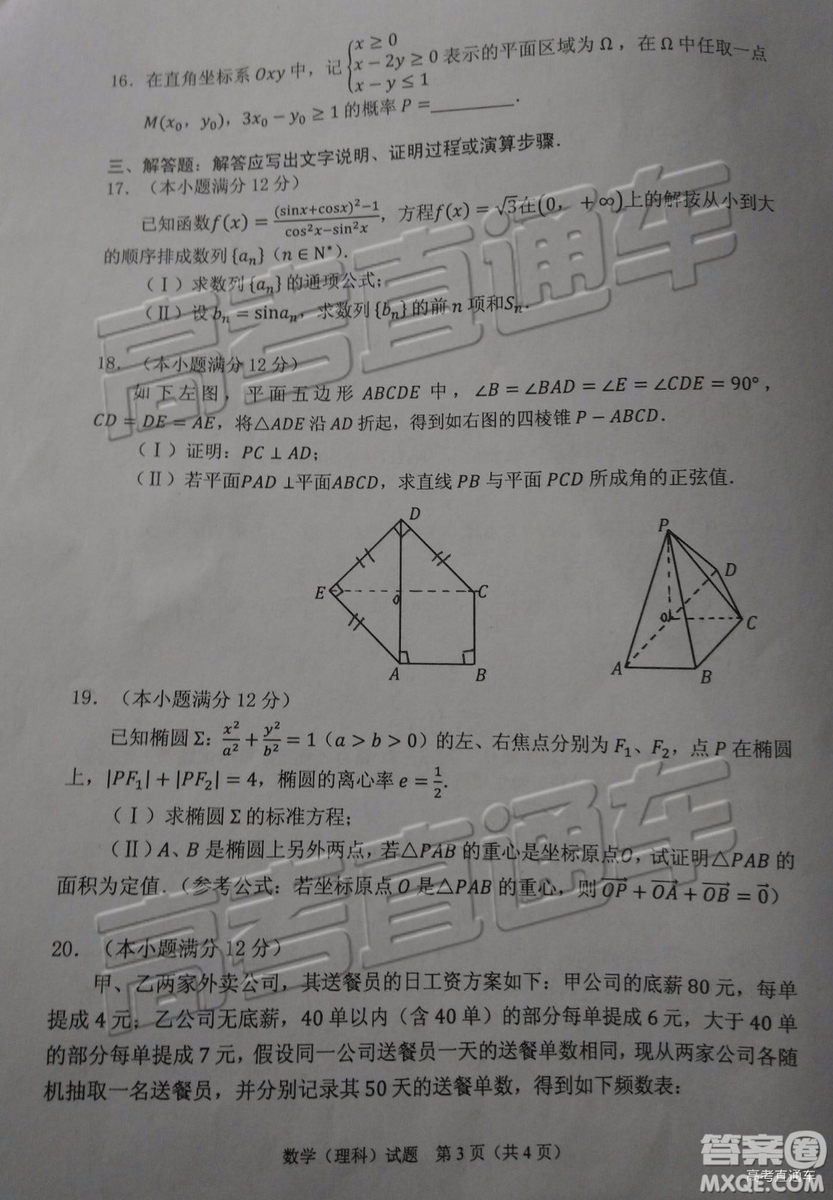 16．在直角坐标系 Oxy 中，记 {x ≥ 0
x − 2y ≥ 0
x − y ≤ 1 表示的平面区域为 Ω，在 Ω 中任取一点
M(x₀，y₀)，3x₀ − y₀ ≥ 1 的概率 P =________．
三、解答题：解答应写出文字说明、证明过程或演算步骤．
17．（本小题满分 12 分）
已知函数f(x) = ((sinx+cosx)²−1)/(cos²x−sin²x)，方程f(x) = √3在(0，+∞)上的解按从小到大
的顺序排成数列 {aₙ}（n ∈ N*）．
（Ⅰ）求数列 {aₙ} 的通项公式；
（Ⅱ）设 bₙ = sinaₙ，求数列 {bₙ} 的前 n 项和Sₙ．
18．（本小题满分 12 分）
如下左图，平面五边形 ABCDE 中，∠B = ∠BAD = ∠E = ∠CDE = 90°，
CD = DE = AE，将△ADE 沿 AD 折起，得到如右图的四棱锥 P − ABCD．
（Ⅰ）证明：PC ⊥ AD；
（Ⅱ）若平面PAD ⊥平面ABCD，求直线 PB 与平面 PCD 所成角的正弦值．
D
E
C
A
B
P
D
C
A
B
19．（本小题满分 12 分）
已知椭圆 Σ：x²/a² + y²/b² = 1（a > b > 0）的左、右焦点分别为 F₁、F₂，点 P 在椭圆
上，|PF₁| + |PF₂| = 4，椭圆的离心率 e = 1/2．
（Ⅰ）求椭圆 Σ 的标准方程；
（Ⅱ）A、B 是椭圆上另外两点，若△PAB 的重心是坐标原点O，试证明△PAB 的
面积为定值．（参考公式：若坐标原点 O 是△PAB 的重心，则OP→ + OA→ + OB→ = 0→）
20．（本小题满分 12 分）
甲、乙两家外卖公司，其送餐员的日工资方案如下：甲公司的底薪 80 元，每单
提成 4 元；乙公司无底薪，40 单以内（含 40 单）的部分每单提成 6 元，大于 40 单
的部分每单提成 7 元，假设同一公司送餐员一天的送餐单数相同，现从两家公司各随
机抽取一名送餐员，并分别记录其 50 天的送餐单数，得到如下频数表：
数学（理科）试题 第 3 页（共 4 页）
高考直通车
高考直通车
答案圈
高考直通车
MXQE.COM